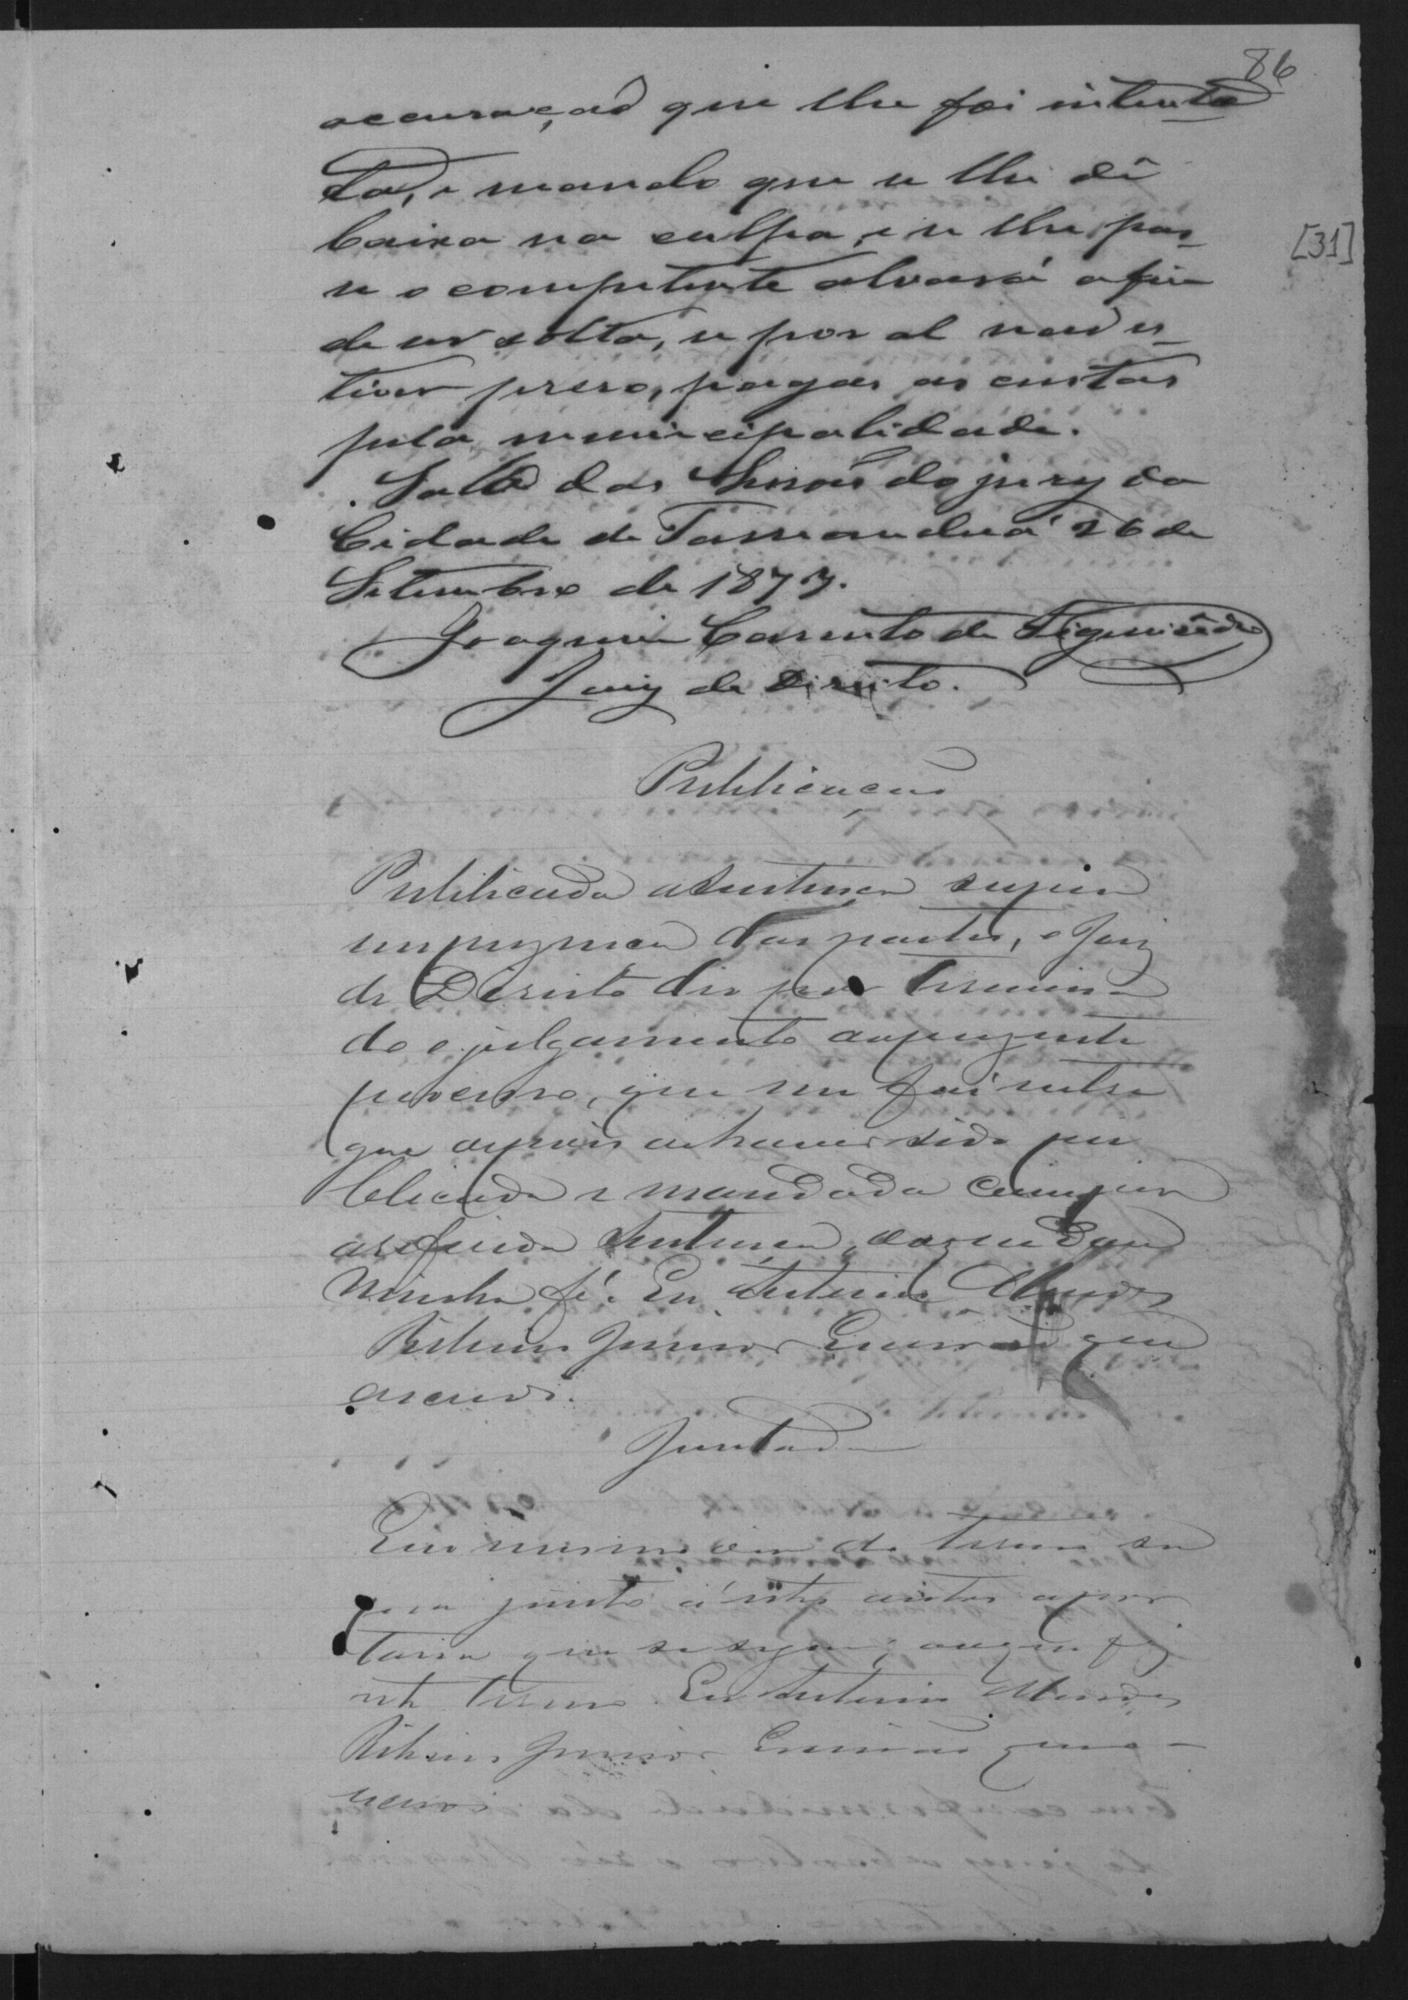 86
[31]
accusação que lhe foi intenta
da, e mando que se lhe dê
baixa na culpa, e se lhe pas_
se o competente alvará a fim
de ser solto, se por al não es_
tiver preso, pagas as custas
pela municipalidade.
Salla das Sessões do jury da
Cidade de Tamanduá 26 de
Setembro de 1877.
Joaquim Barreto de Figueirêdo
Juiz de Direito.
Publicação
Publicada a sentença supra
em prezença das partes, o Juiz
de Direito deu por termina
do o julgamento do prezente
processo, que
que depois de haver sido pu
blicada e mandada cumprir
a referida sentença, do que dou
minha fé. Eu Antonio Mendes
Ribeiro Junior Escrivão que
o escrevi.
Juntada
Em mesmo dia do termo su
pra junto á estes autos a por
taria que se segue; do que fiz
este termo. Eu Antonio Mendes
Ribeiro Junior Escrivão que o
escrevi